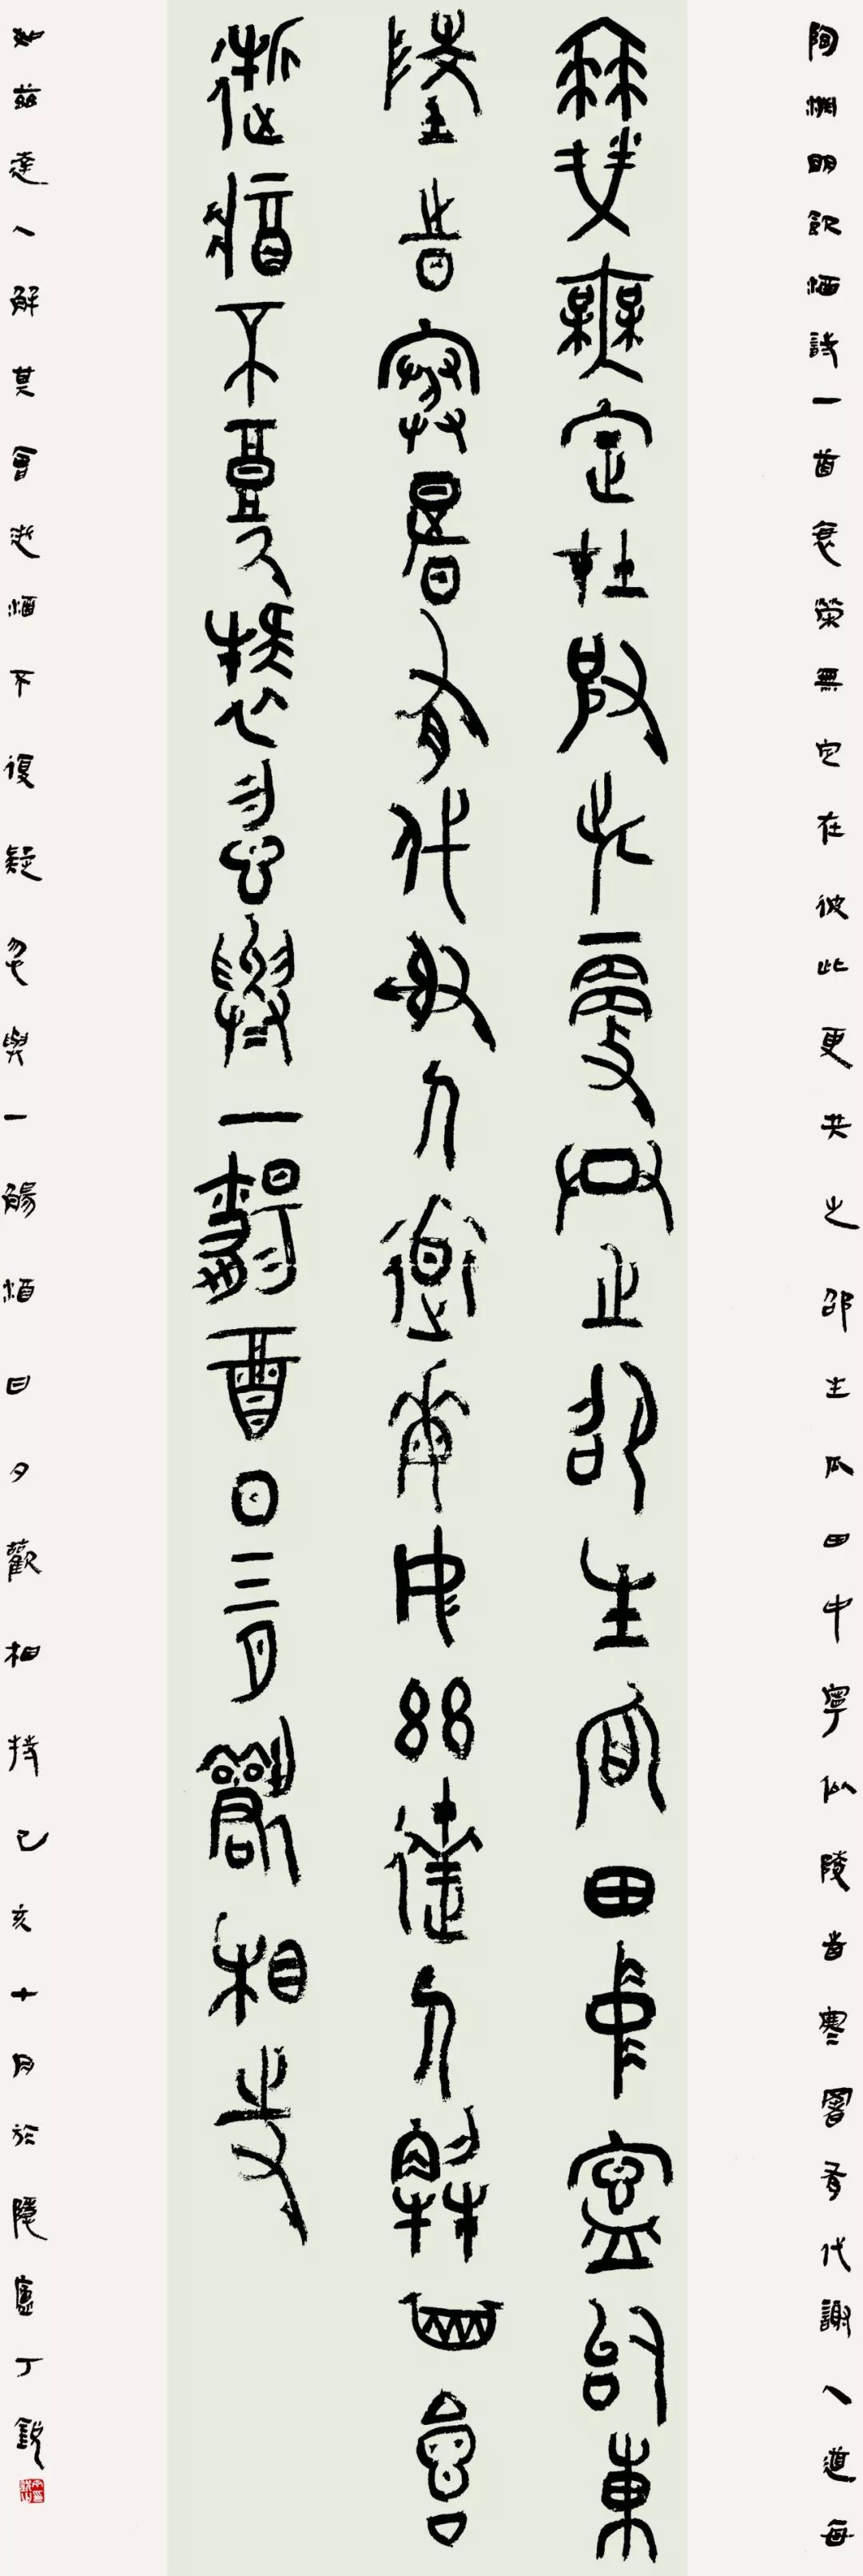 陶淵明飲酒詩一首衰榮無定在彼此更共之邵生瓜田中寧似陵旹寒暑有代謝人道每
衰榮無定在彼此更共之邵生瓜田中寧似東
陵旹寒暑有代謝人道每如茲達人解其會
逝將不復疑忽與一觴酒日夕歡相持
如茲達人解其會逝將不復疑忽與一觴酒日夕歡相持己亥十月於隱廬丁銳